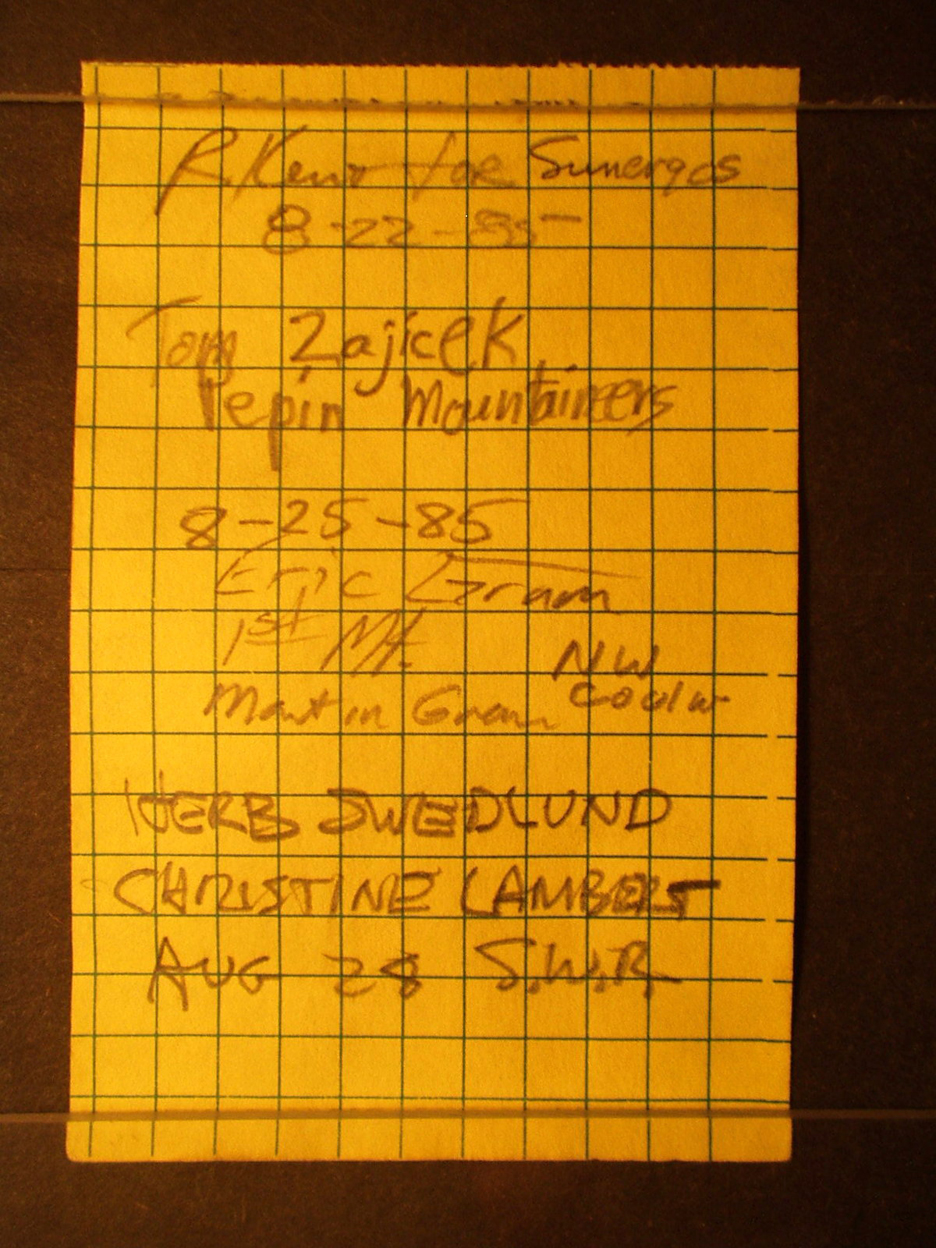 R. Keno for Sunergos
8-22-85
Tom Zajicek
Pepin Mountaineers
8-25-85
Eric
1st Mt.
NW
Martin Gram
HERB SWEDLUND
CHRISTINE LAMBERT
AUG 28 S.W.R.